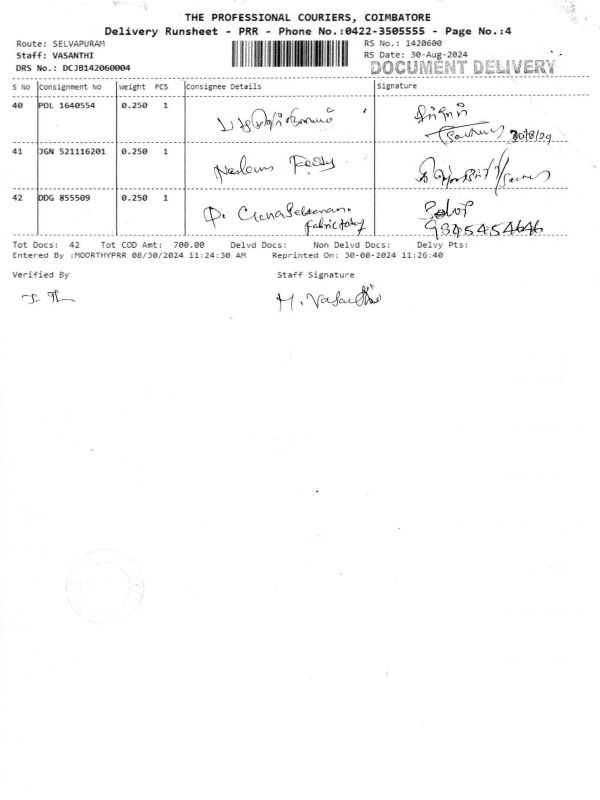 THE PROFESSIONAL COURIERS, COIMBATORE
Delivery Runsheet - PRR - Phone No.:0422-3505555 - Page No.:4
Route: SELVAPURAM RS No.: 1420600
Staff: VASANTHI RS Date: 30-Aug-2024
DRS No.: DCJB142060004 DOCUMENT DELIVERY
S No Consignment No Weight PCS Consignee Details Signature
40 POL 1640554 0.250 1
30/8/29
41 JGN 521116201 0.250 1
42 DDG 855509 0.250 1
9345454646
Tot Docs: 42 Tot COD Amt: 700.00 Delvd Docs: Non Delvd Docs: Delvy Pts:
Entered By :MOORTHYPRR 08/30/2024 11:24:30 AM Reprinted On: 30-08-2024 11:26:40
Verified By Staff Signature